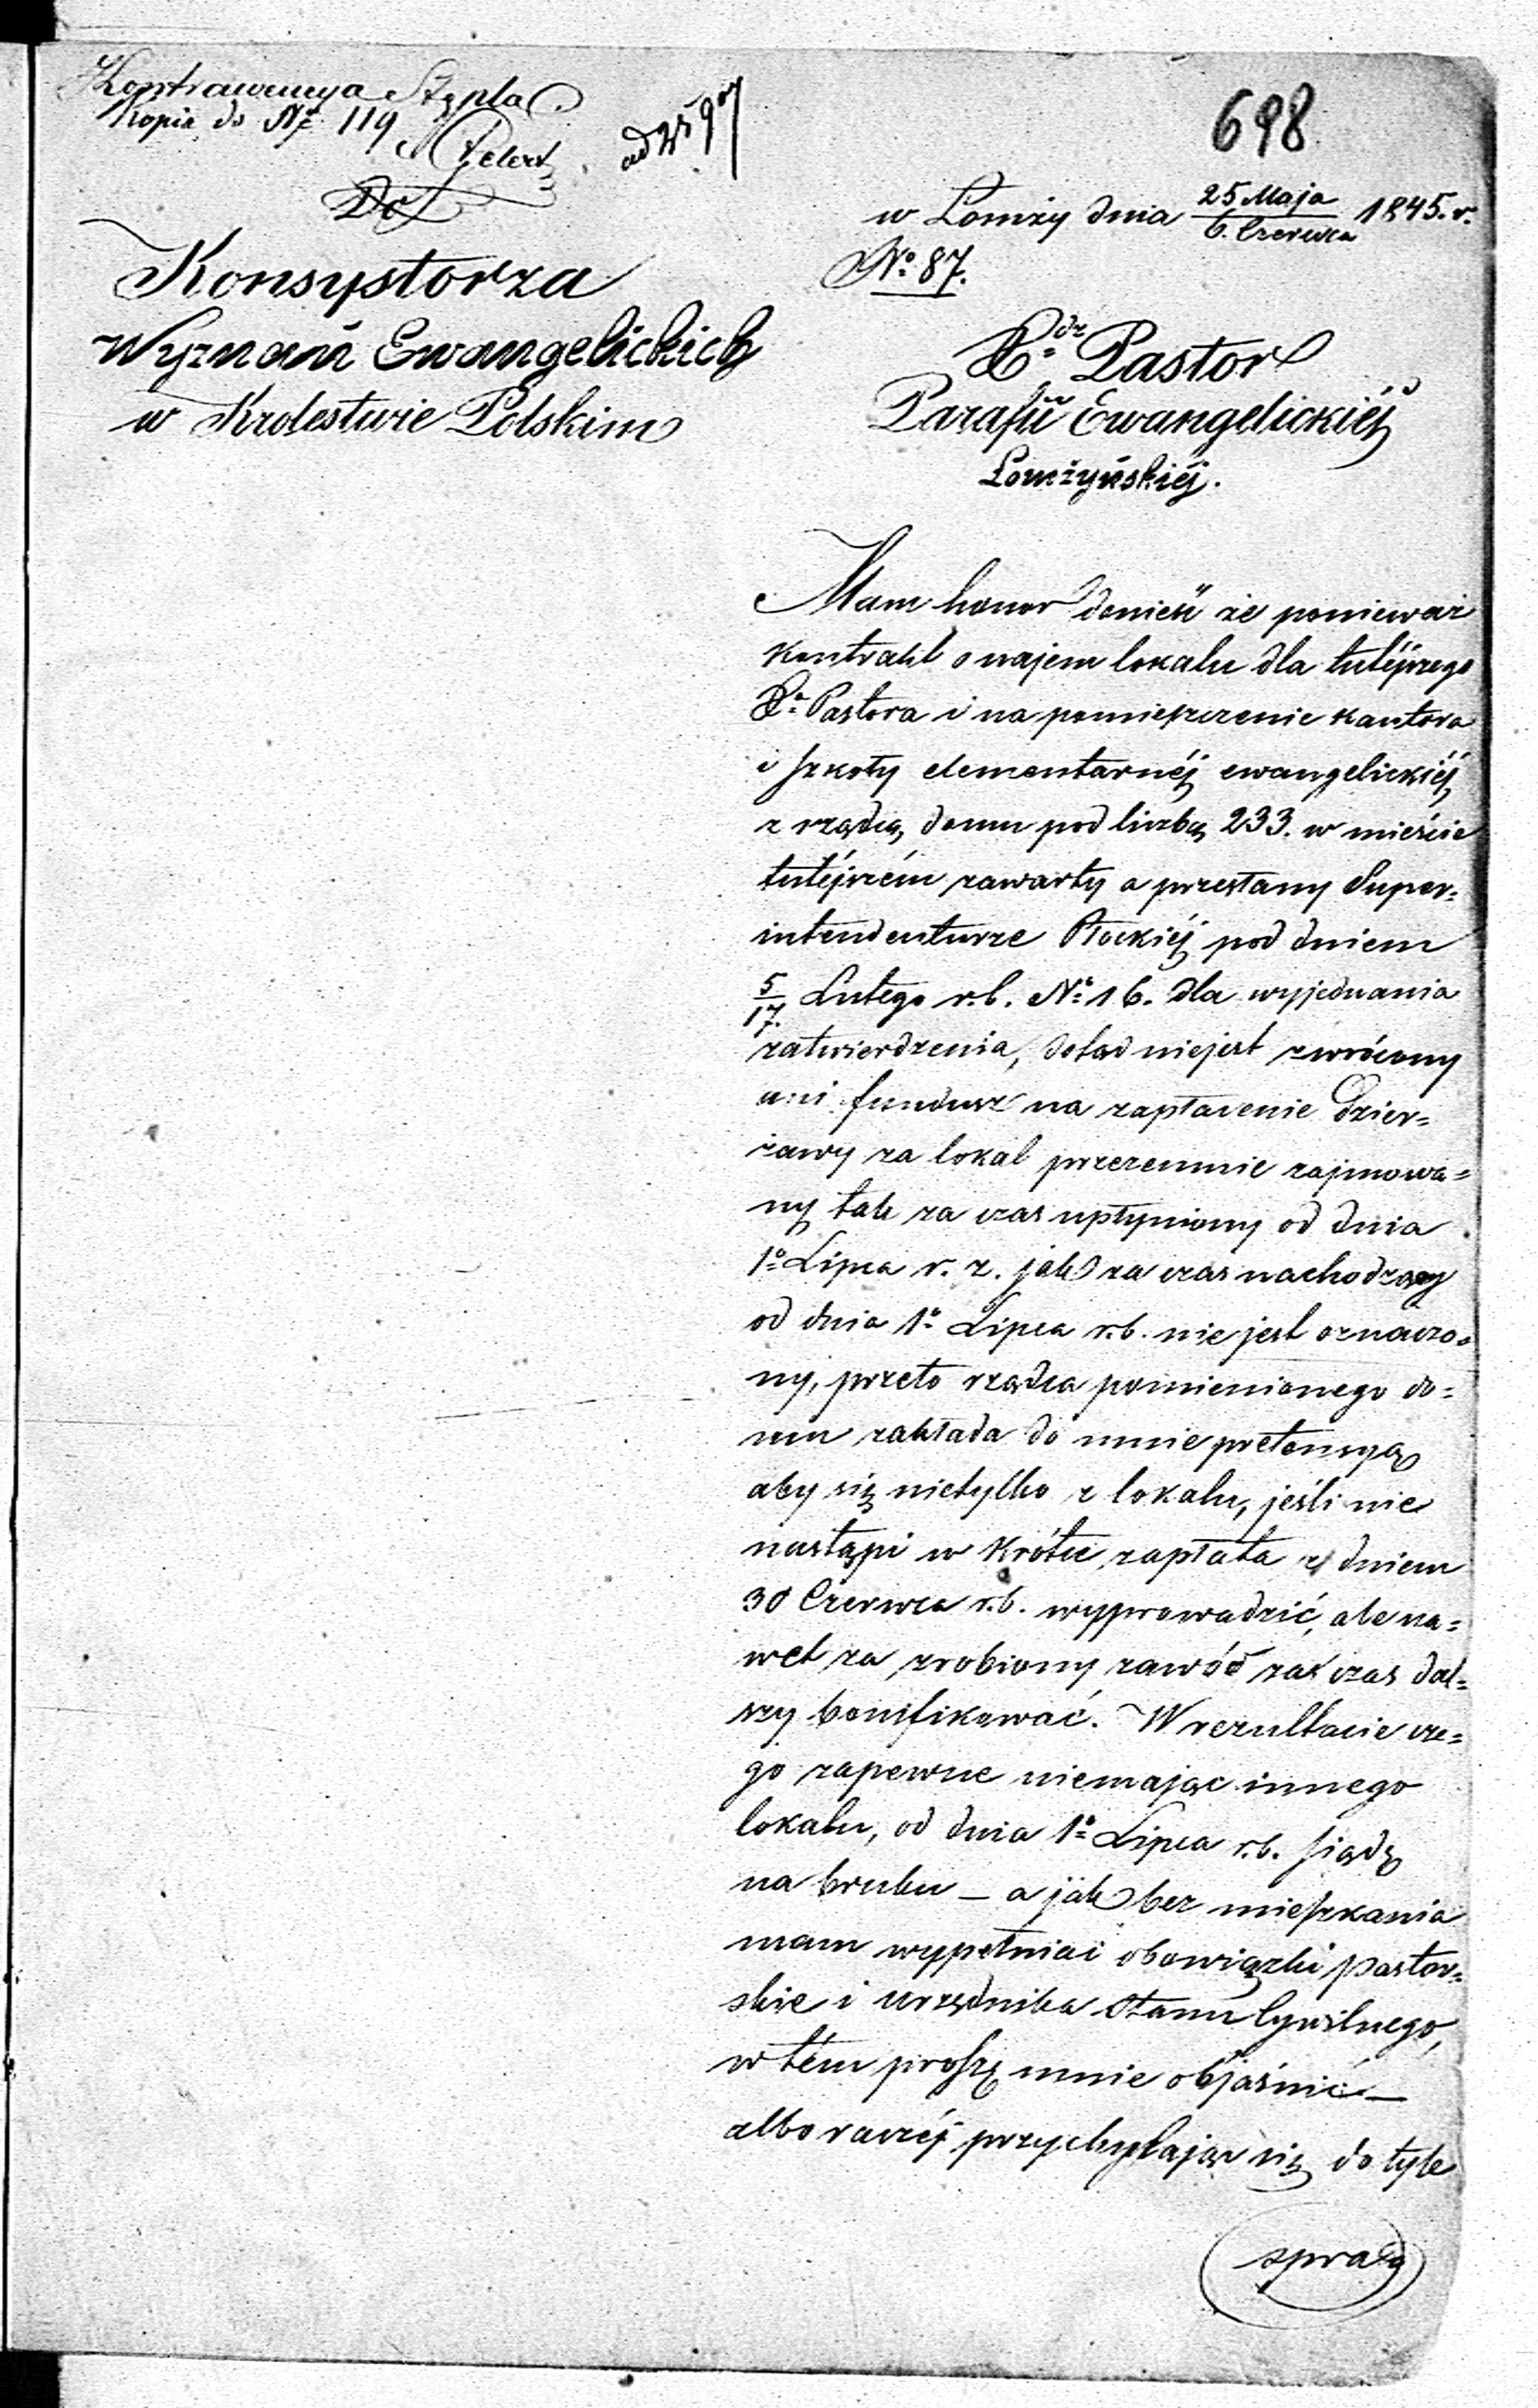 Kontrawencya Stępla
Kopia do № 119
ad 2597
698
Do
Konsystorza
Wyznań Ewangelickich
w Krolestwie Polskim
w Łomży dnia 25 Maja / 6. Czerwca 1845. r.
№ 87.
Pastor
Parafii Ewangelickiéj
Łomżyńskiéj.
Mam honor donieść że ponieważ
kontrakt o najem lokalu dla tutéjszego
Xa Pastora i na pomieszczenie kantora
i szkoły elementarnéj ewangelickiéj
z rządcą domu pod liczbą 233. w mieście
tutéjszém zawarty a przesłany Super=
intendenturze Płockiéj pod dniem
5/17. Lutego r.b. № 16. dla wyjednania
zatwierdzenia, dotąd niejest zwrócony
ani fundusz na zapłacenie dzier=
żawy za lokal przezemnie zajmowa=
ny tak za czas upłyniony od dnia
1o Lipca r. z. jak za czas nachodzący
od dnia 1o Lipca r.b. nie jest oznaczo=
ny, przeto rządca pomienionego do=
mu zakłada do mnie pretensyą
aby się nietylko z lokalu, jeśli nie
nastąpi w krótce zapłata z dniem
30 Czerwca r.b. wyprowadzić, ale na=
wet za zrobiony zawód zaś czas dal=
szy bonifikować. W rezultacie cze=
go zapewne niemając innego
lokalu, od dnia 1o Lipca r.b. siądę
na bruku – a jak bez mieszkania
mam wypełniać obowiązki pastor=
skie i urzędnika Stanu Cywilnego,
w tém proszę mnie objaśnić –
albo raczéj przychylając się do tyle